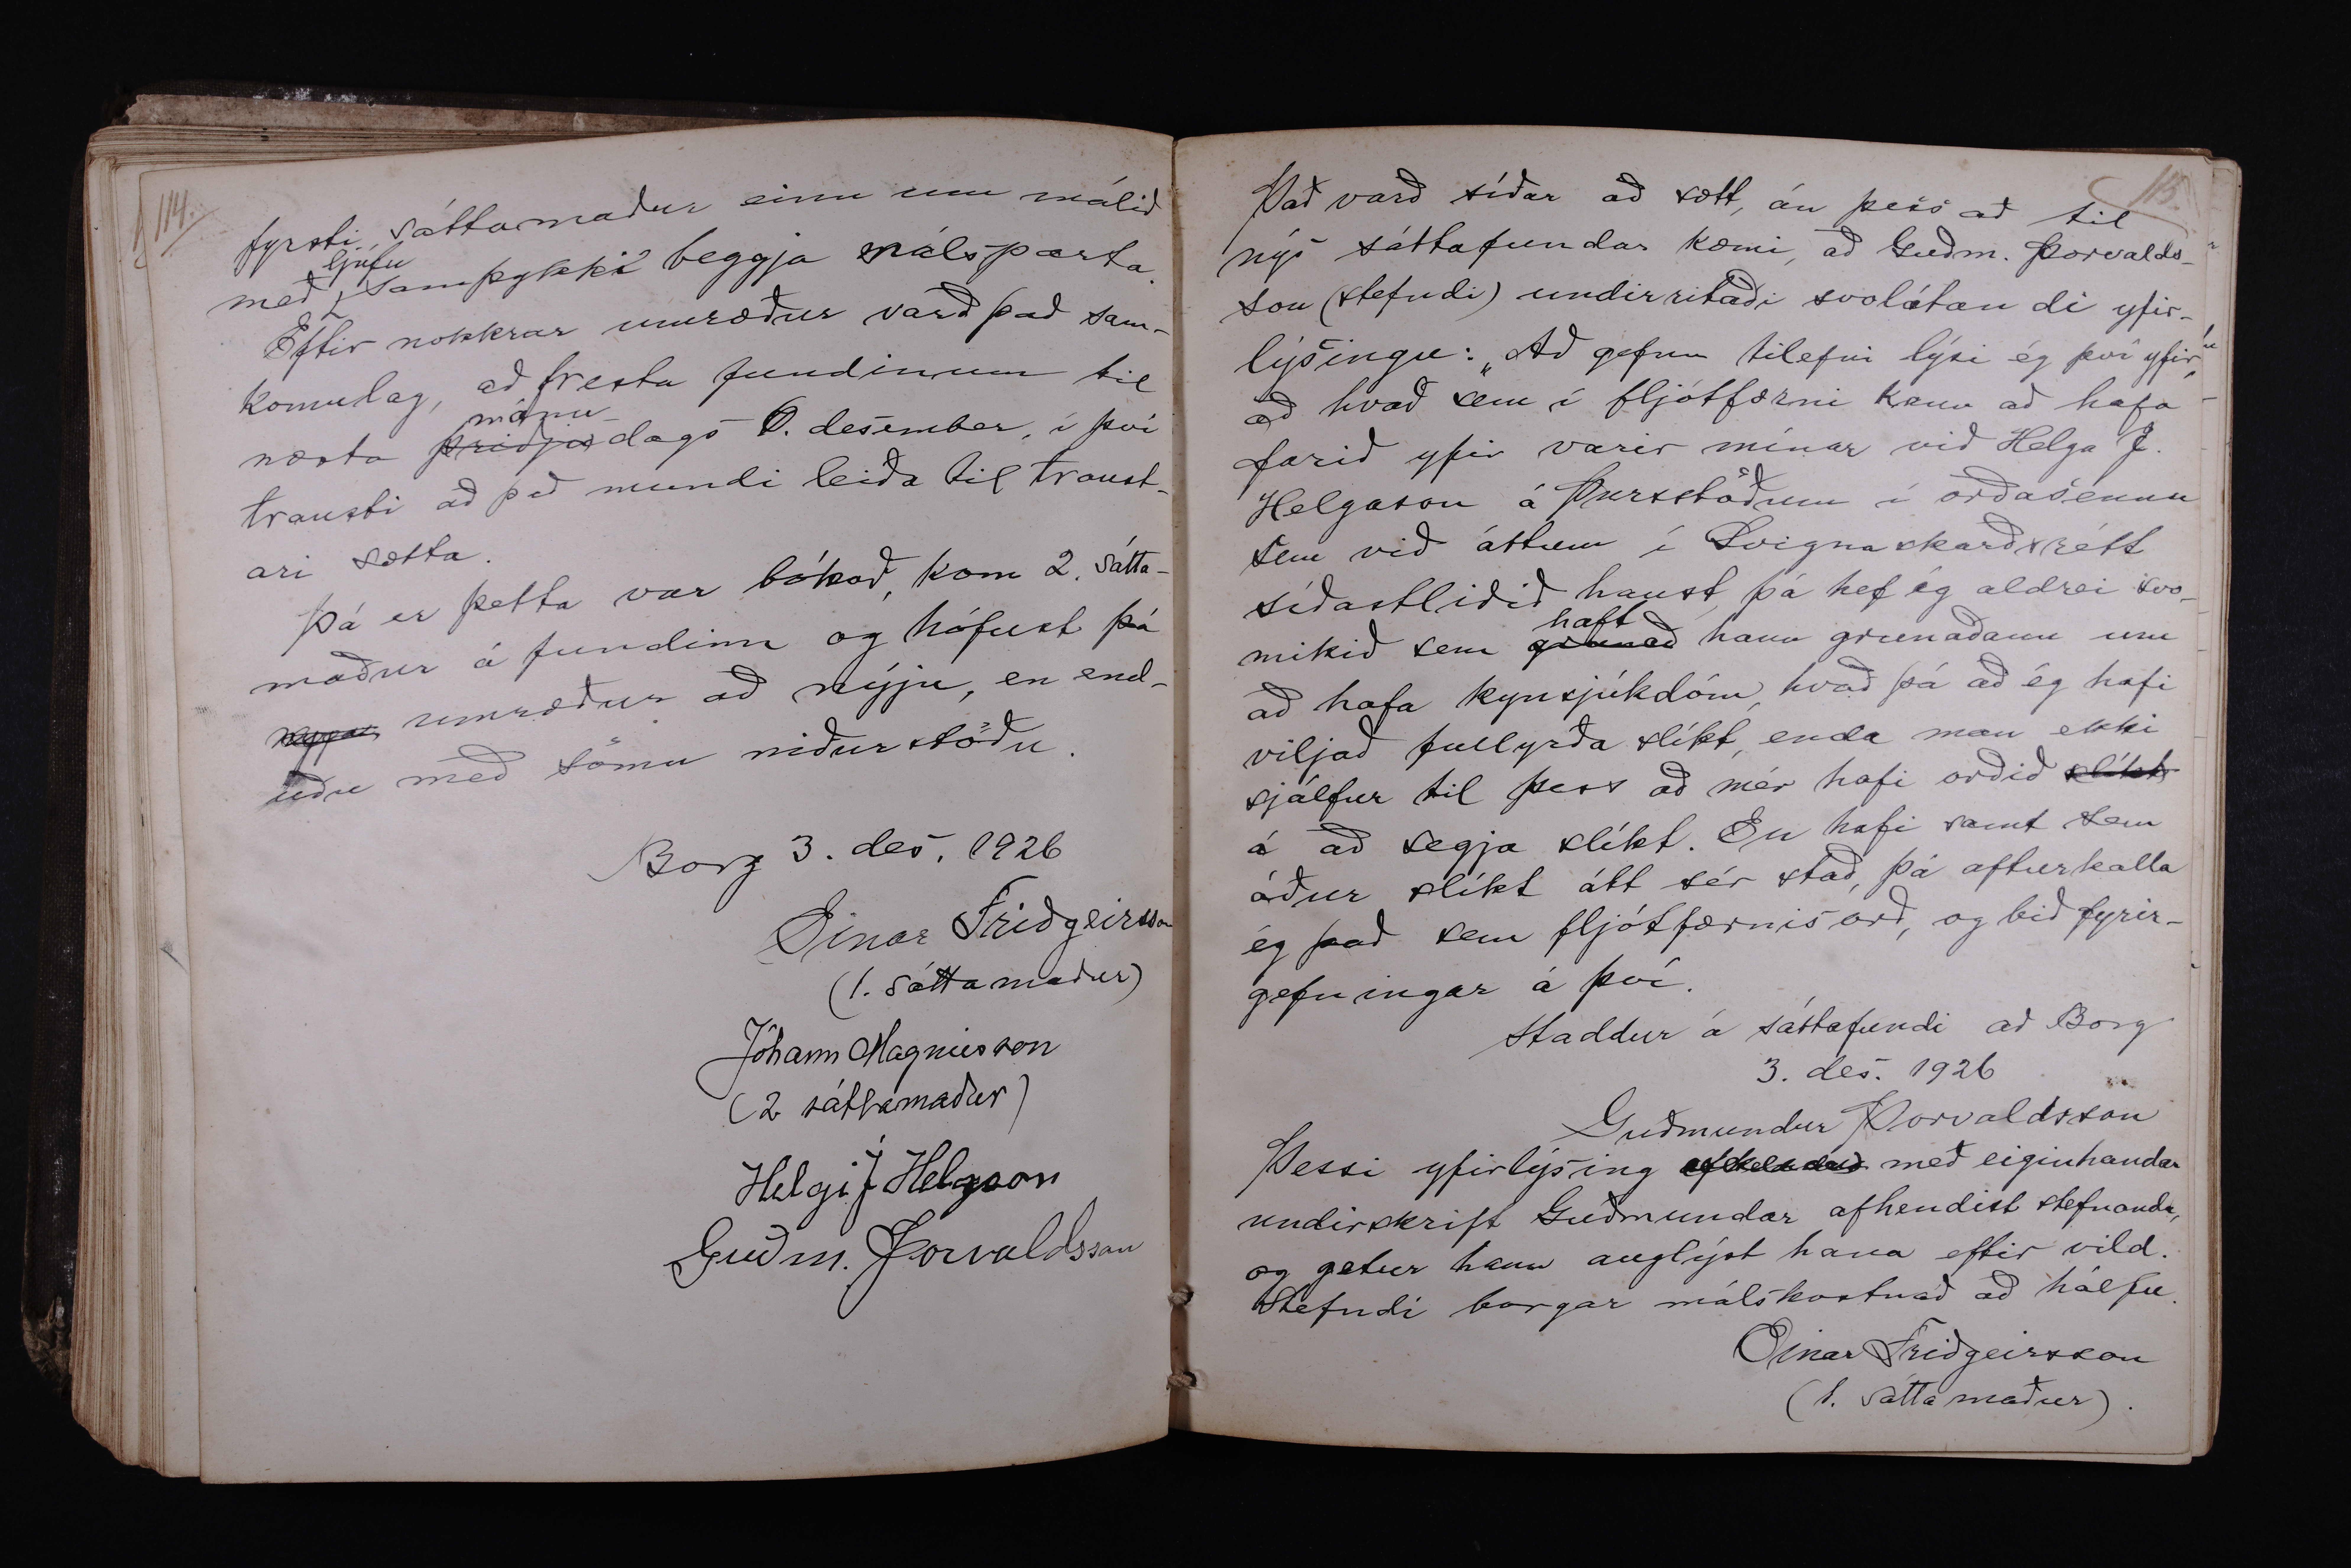 114.
fyrsti sáttamaður einn um málið
með ljúfu samþykki beggja málsparta.
Eftir nokkrar umræður varð það sam-
komulag, að fresta fundinum til
næsta mánu dags 6. desember, í því
trausti að það mundi leiða til traust-
ari sætta.
Þá er þetta var bókað, kom 2. sátta-
maður á fundinn og hófust þá
umræður að nýju, en end-
uðu með sömu niðurstöðu.
Borg 3. des. 1926
Einar Friðgeirsson
(1. sáttamaður)
Jóhann Magnússon
(2 sáttamaður)
Helgi J Helgason
Guðm. Þorvaldsson
115.
Það varð síðar að sætt, án þess að til
nýs sáttafundar kæmi, að Guðm. Þorvalds-
son (stefndi) undirritaði svolátandi yfir-
lýsingu: „Að gefnu tilefni lýsi ég því yfir,
að hvað sem í fljótfærni kann að hafa
farið yfir varir mínar við Helga J.
Helgason á Þursstöðum í orðasennu
sem við áttum í Svignaskarðsrétt
síðastliðið haust, þá hef ég aldrei svo-
mikið sem grunað haft hann grunaðann um
að hafa kynsjúkdóm, hvað þá að ég hafi
viljað fullyrða slíkt, enda man ekki
sjálfur til þess að mér hafi orðið slíkt
á að segja slíkt. En hafi samt sem
áður slíkt átt sér stað, þá afturkalla
ég það sem fljótfærnisorð, og bið fyrir-
gefningar á því.
Staddur á sáttafundi að Borg
3. des. 1926
Guðmundur Þorvaldsson
Þessi yfirlýsing með eiginhandar
undirskrift Guðmundar afhendist stefnanda,
og getur hann auglýst hana eftir vild.
Stefndi borgar málskostnað að hálfu.
Einar Friðgeirsson
(1. sáttamaður).